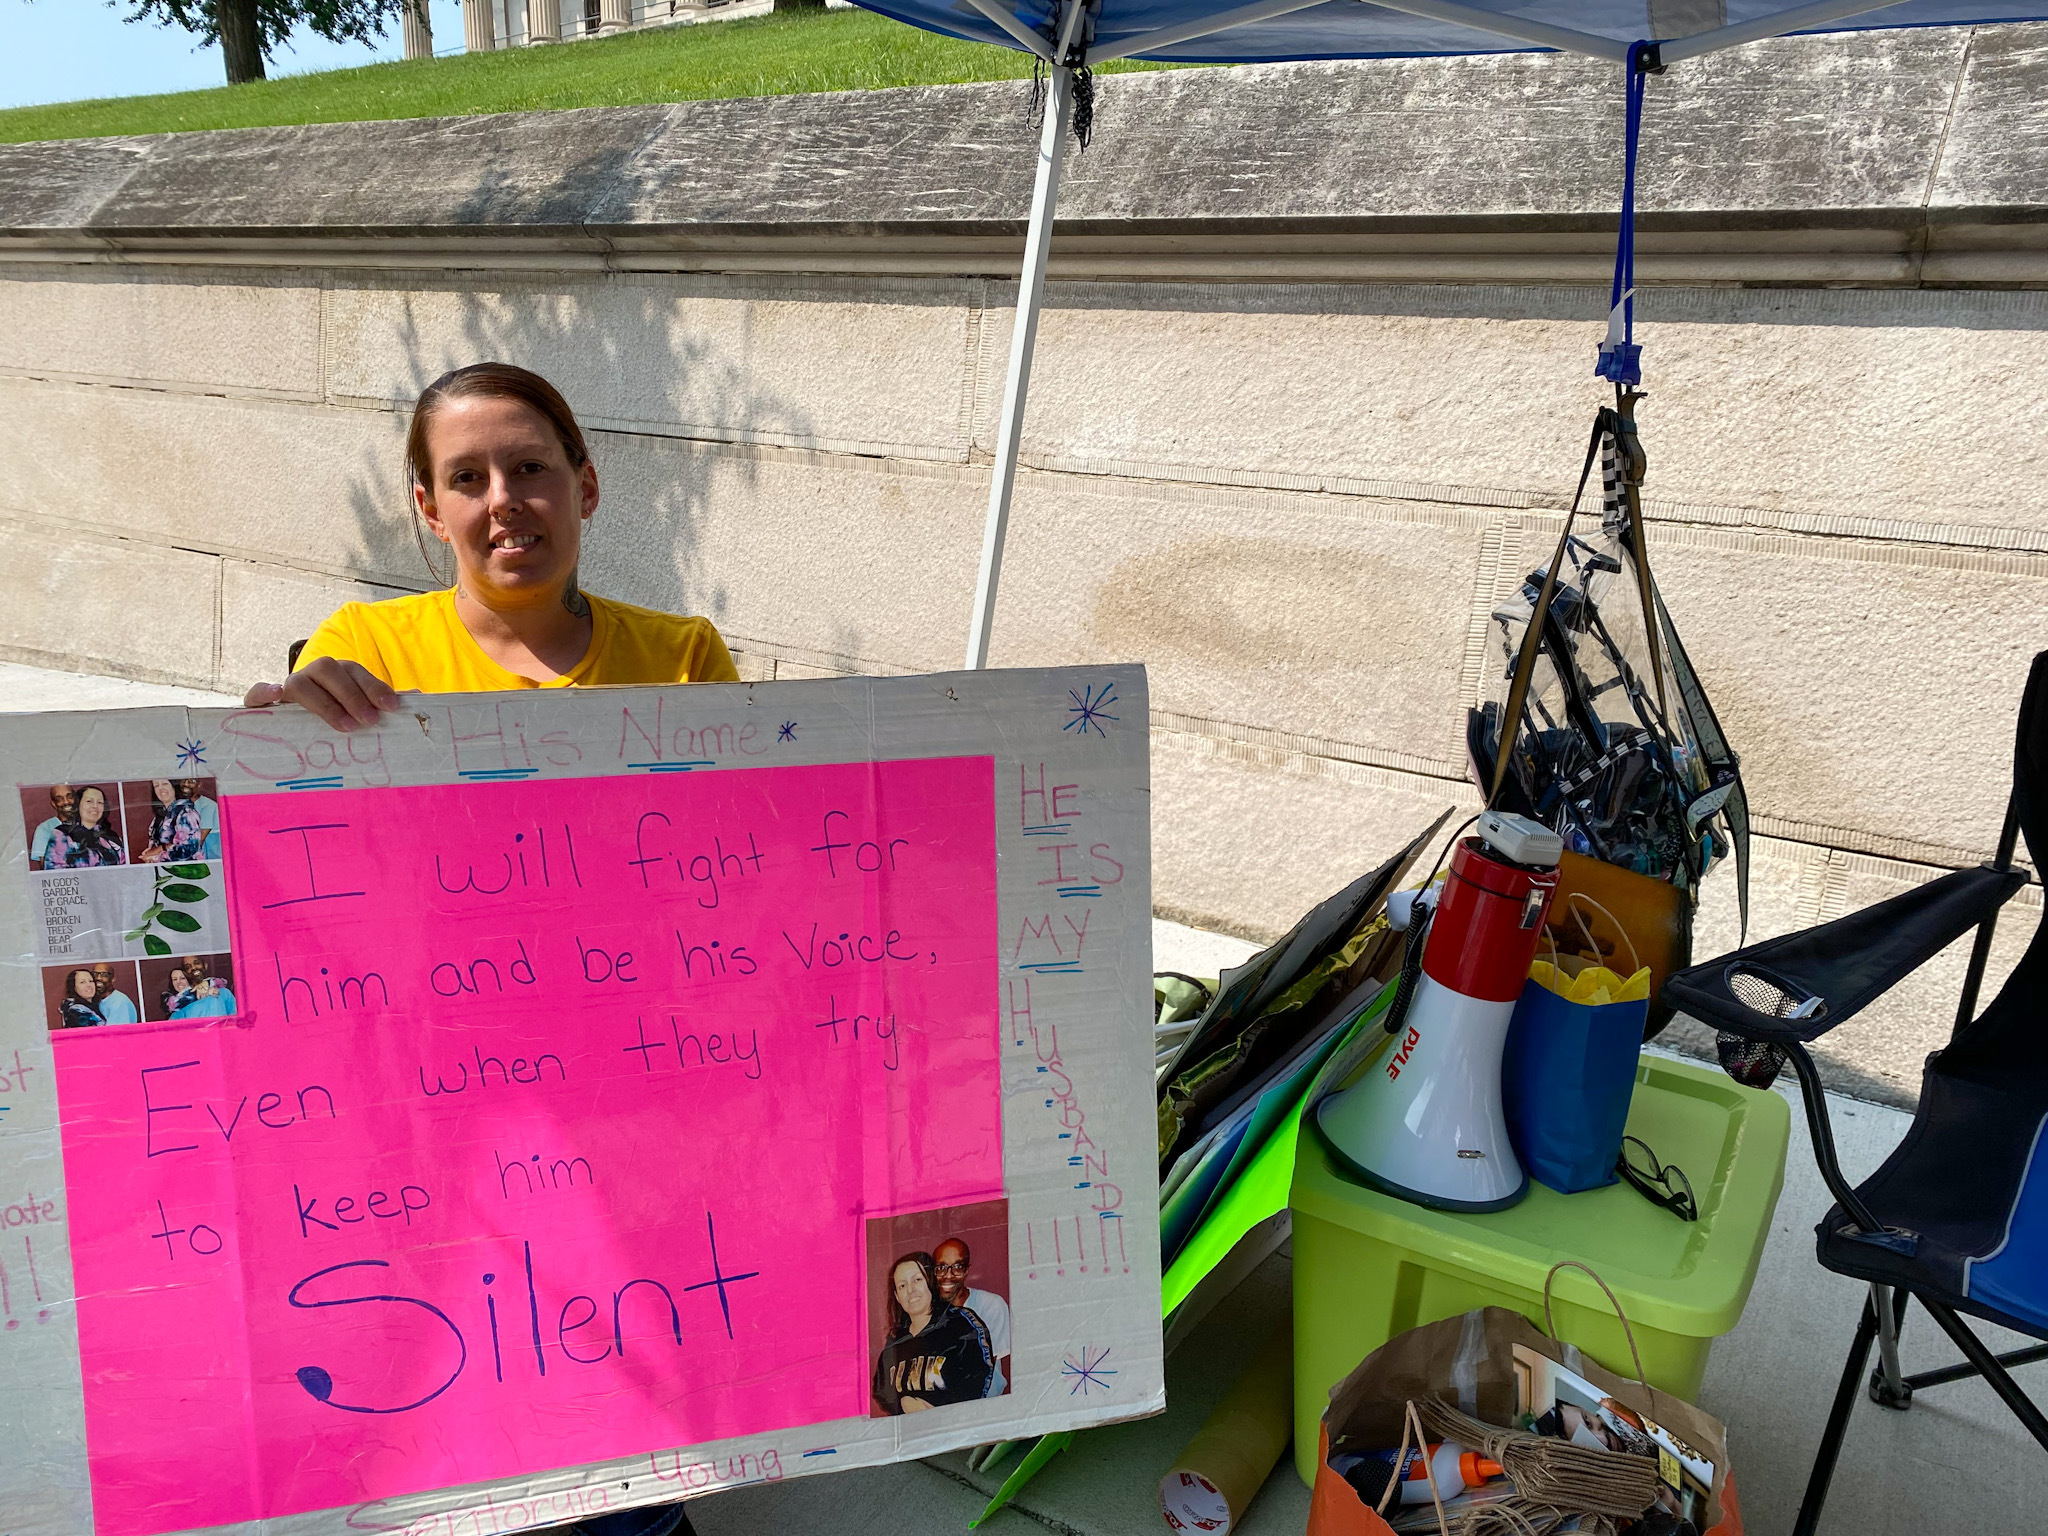 Say His Name
I will fight for
him and be his Voice,
Even when they try
to keep him
Silent
HE
IS
MY
HUSBAND
!!!!!
IN GOD'S
GARDEN
OF GRACE,
EVEN
BROKEN
TREES
BEAR
FRUIT.
Young
PINK
PYLE